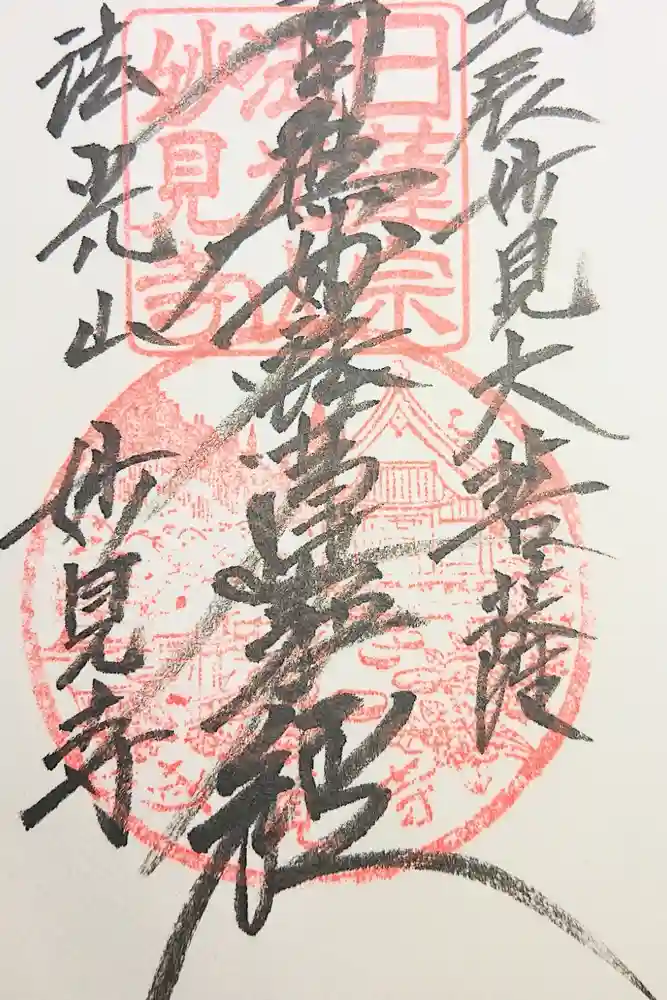 北辰妙見大菩薩
南無妙法蓮華経
法光山 妙見寺
日蓮宗
妙見寺